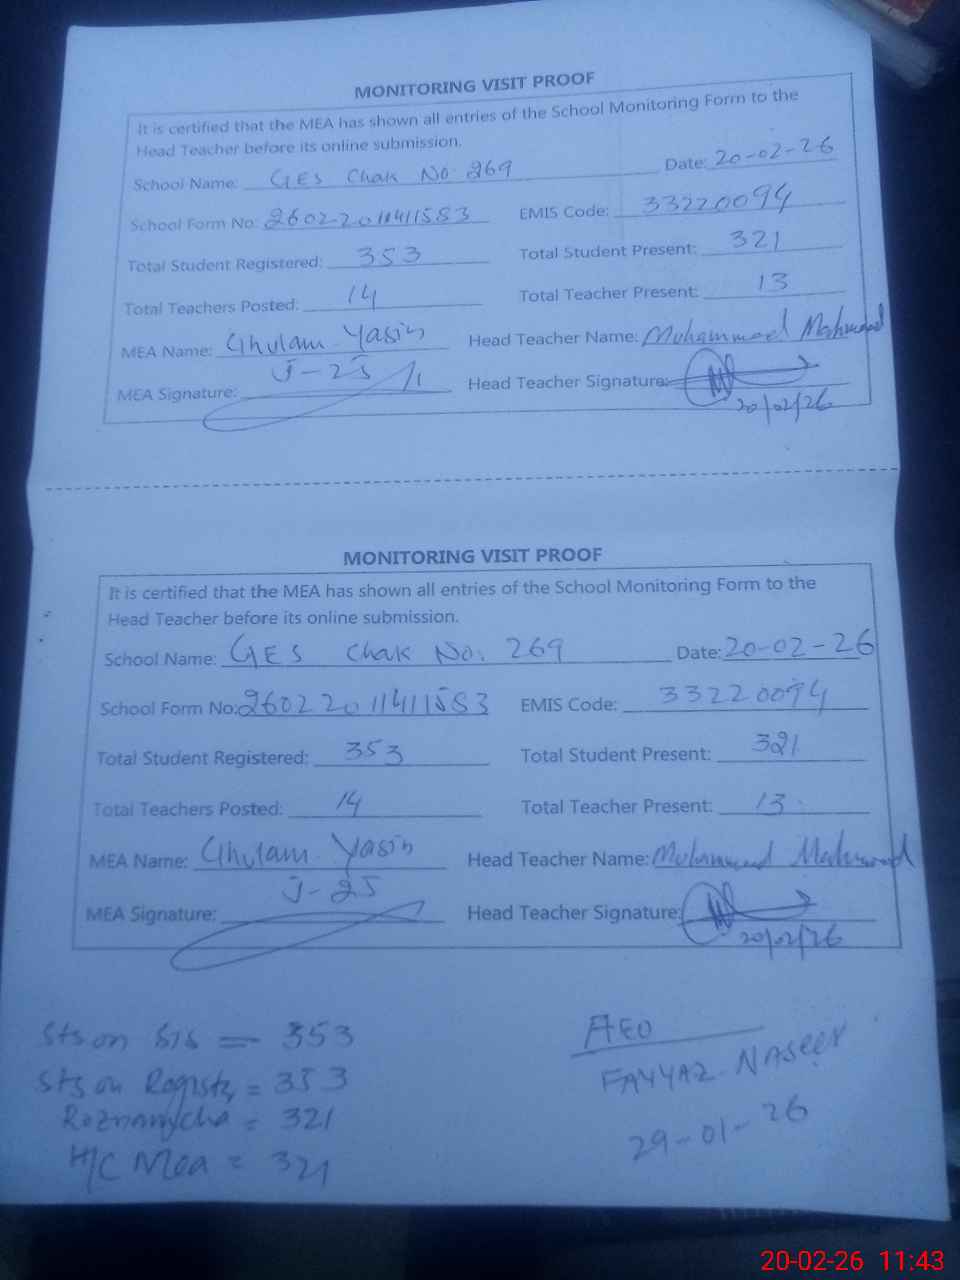 MONITORING VISIT PROOF
It is certified that the MEA has shown all entries of the School Monitoring Form to the
Head Teacher before its online submission.
School Name: GES Chak No 269 Date: 20-02-26
School Form No: 26022011411583 EMIS Code: 33220094
Total Student Registered: 353 Total Student Present: 321
Total Teachers Posted: 14 Total Teacher Present: 13
MEA Name: Ghulam Yasin Head Teacher Name: Muhammad Mahmood
J-25
MEA Signature: Head Teacher Signature:
20/02/26
MONITORING VISIT PROOF
It is certified that the MEA has shown all entries of the School Monitoring Form to the
Head Teacher before its online submission.
School Name: GES Chak No. 269 Date: 20-02-26
School Form No: 26022011411583 EMIS Code: 33220094
Total Student Registered: 353 Total Student Present: 321
Total Teachers Posted: 14 Total Teacher Present: 13
MEA Name: Ghulam Yasin Head Teacher Name: Muhammad Mahmood
J-25
MEA Signature: Head Teacher Signature:
20/02/26
Sts on SIS = 353
Sts on Registr = 353
Roznamcha = 321
H/C Mea = 321
AEO
FAYYAZ NASEER
29-01-26
20-02-26 11:43